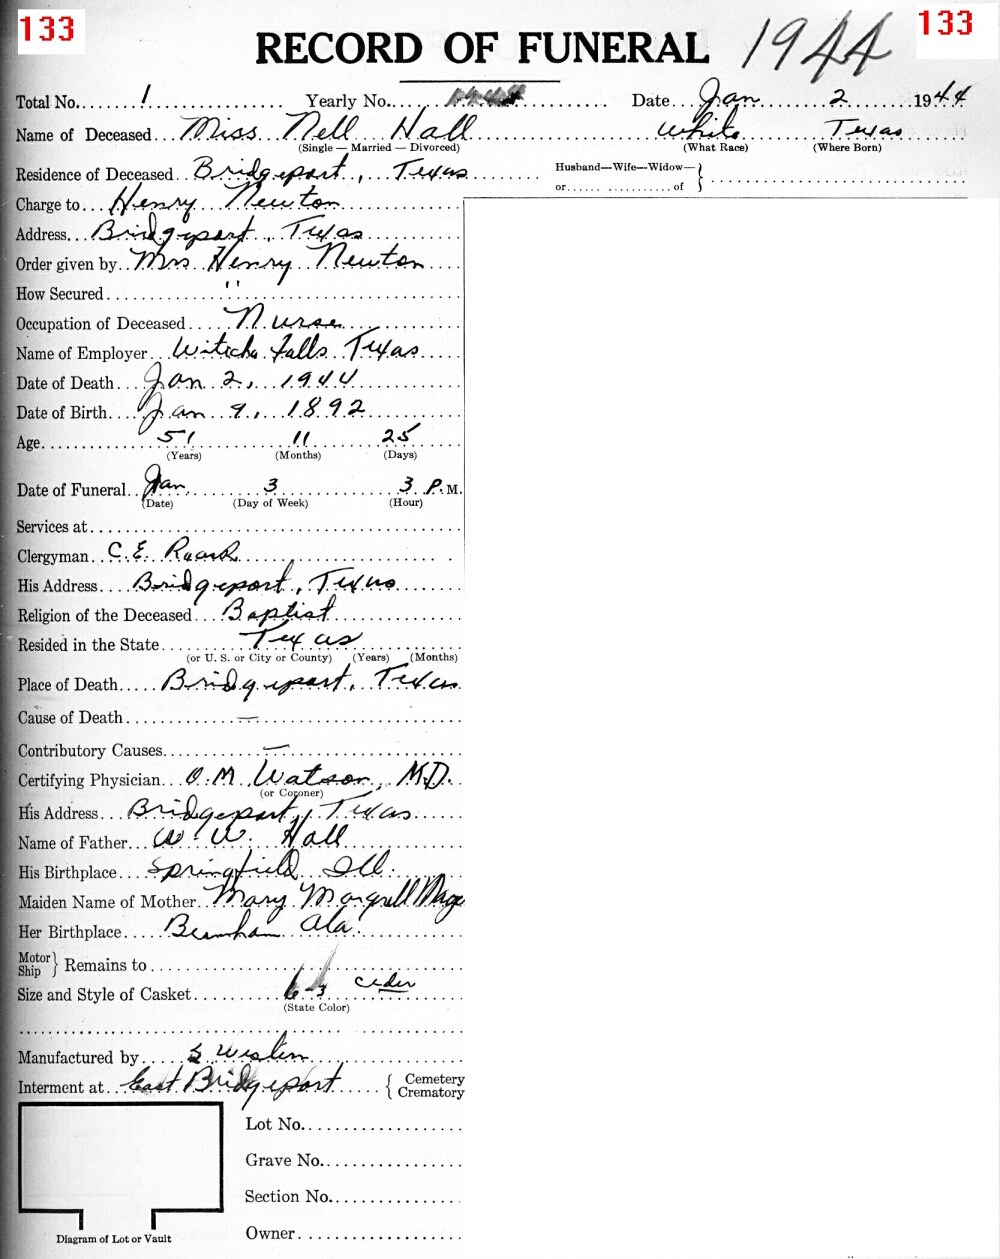 133 RECORD OF FUNERAL 1944 133
Total No. 1 Yearly No. Date Jan 2 1944
Name of Deceased Miss Nell Hall White Texas
(Single — Married — Divorced) (What Race) (Where Born)
Residence of Deceased Bridgeport, Texas Husband—Wife—Widow—
or of
Charge to Henry Newton
Address Bridgeport, Texas
Order given by Mrs Henry Newton
How Secured "
Occupation of Deceased Nurse
Name of Employer Witcha Falls Texas
Date of Death Jan 2, 1944
Date of Birth Jan 9, 1892
Age 51 11 25
(Years) (Months) (Days)
Date of Funeral Jan 3 3 P.M.
(Date) (Day of Week) (Hour)
Services at
Clergyman C. E. Roark
His Address Bridgeport, Texas
Religion of the Deceased Baptist
Resided in the State Texas
(or U. S. or City or County) (Years) (Months)
Place of Death Bridgeport, Texas
Cause of Death —
Contributory Causes —
Certifying Physician O. M. Watson, M.D.
(or Coroner)
His Address Bridgeport, Texas
Name of Father W. W. Hall
His Birthplace Springfield Ill.
Maiden Name of Mother Mary
Her Birthplace Ala.
Motor
Ship } Remains to
Size and Style of Casket 6-3 ceder
(State Color)
Manufactured by
Interment at East Bridgeport { Cemetery
Crematory
Lot No.
Grave No.
Section No.
Owner
Diagram of Lot or Vault